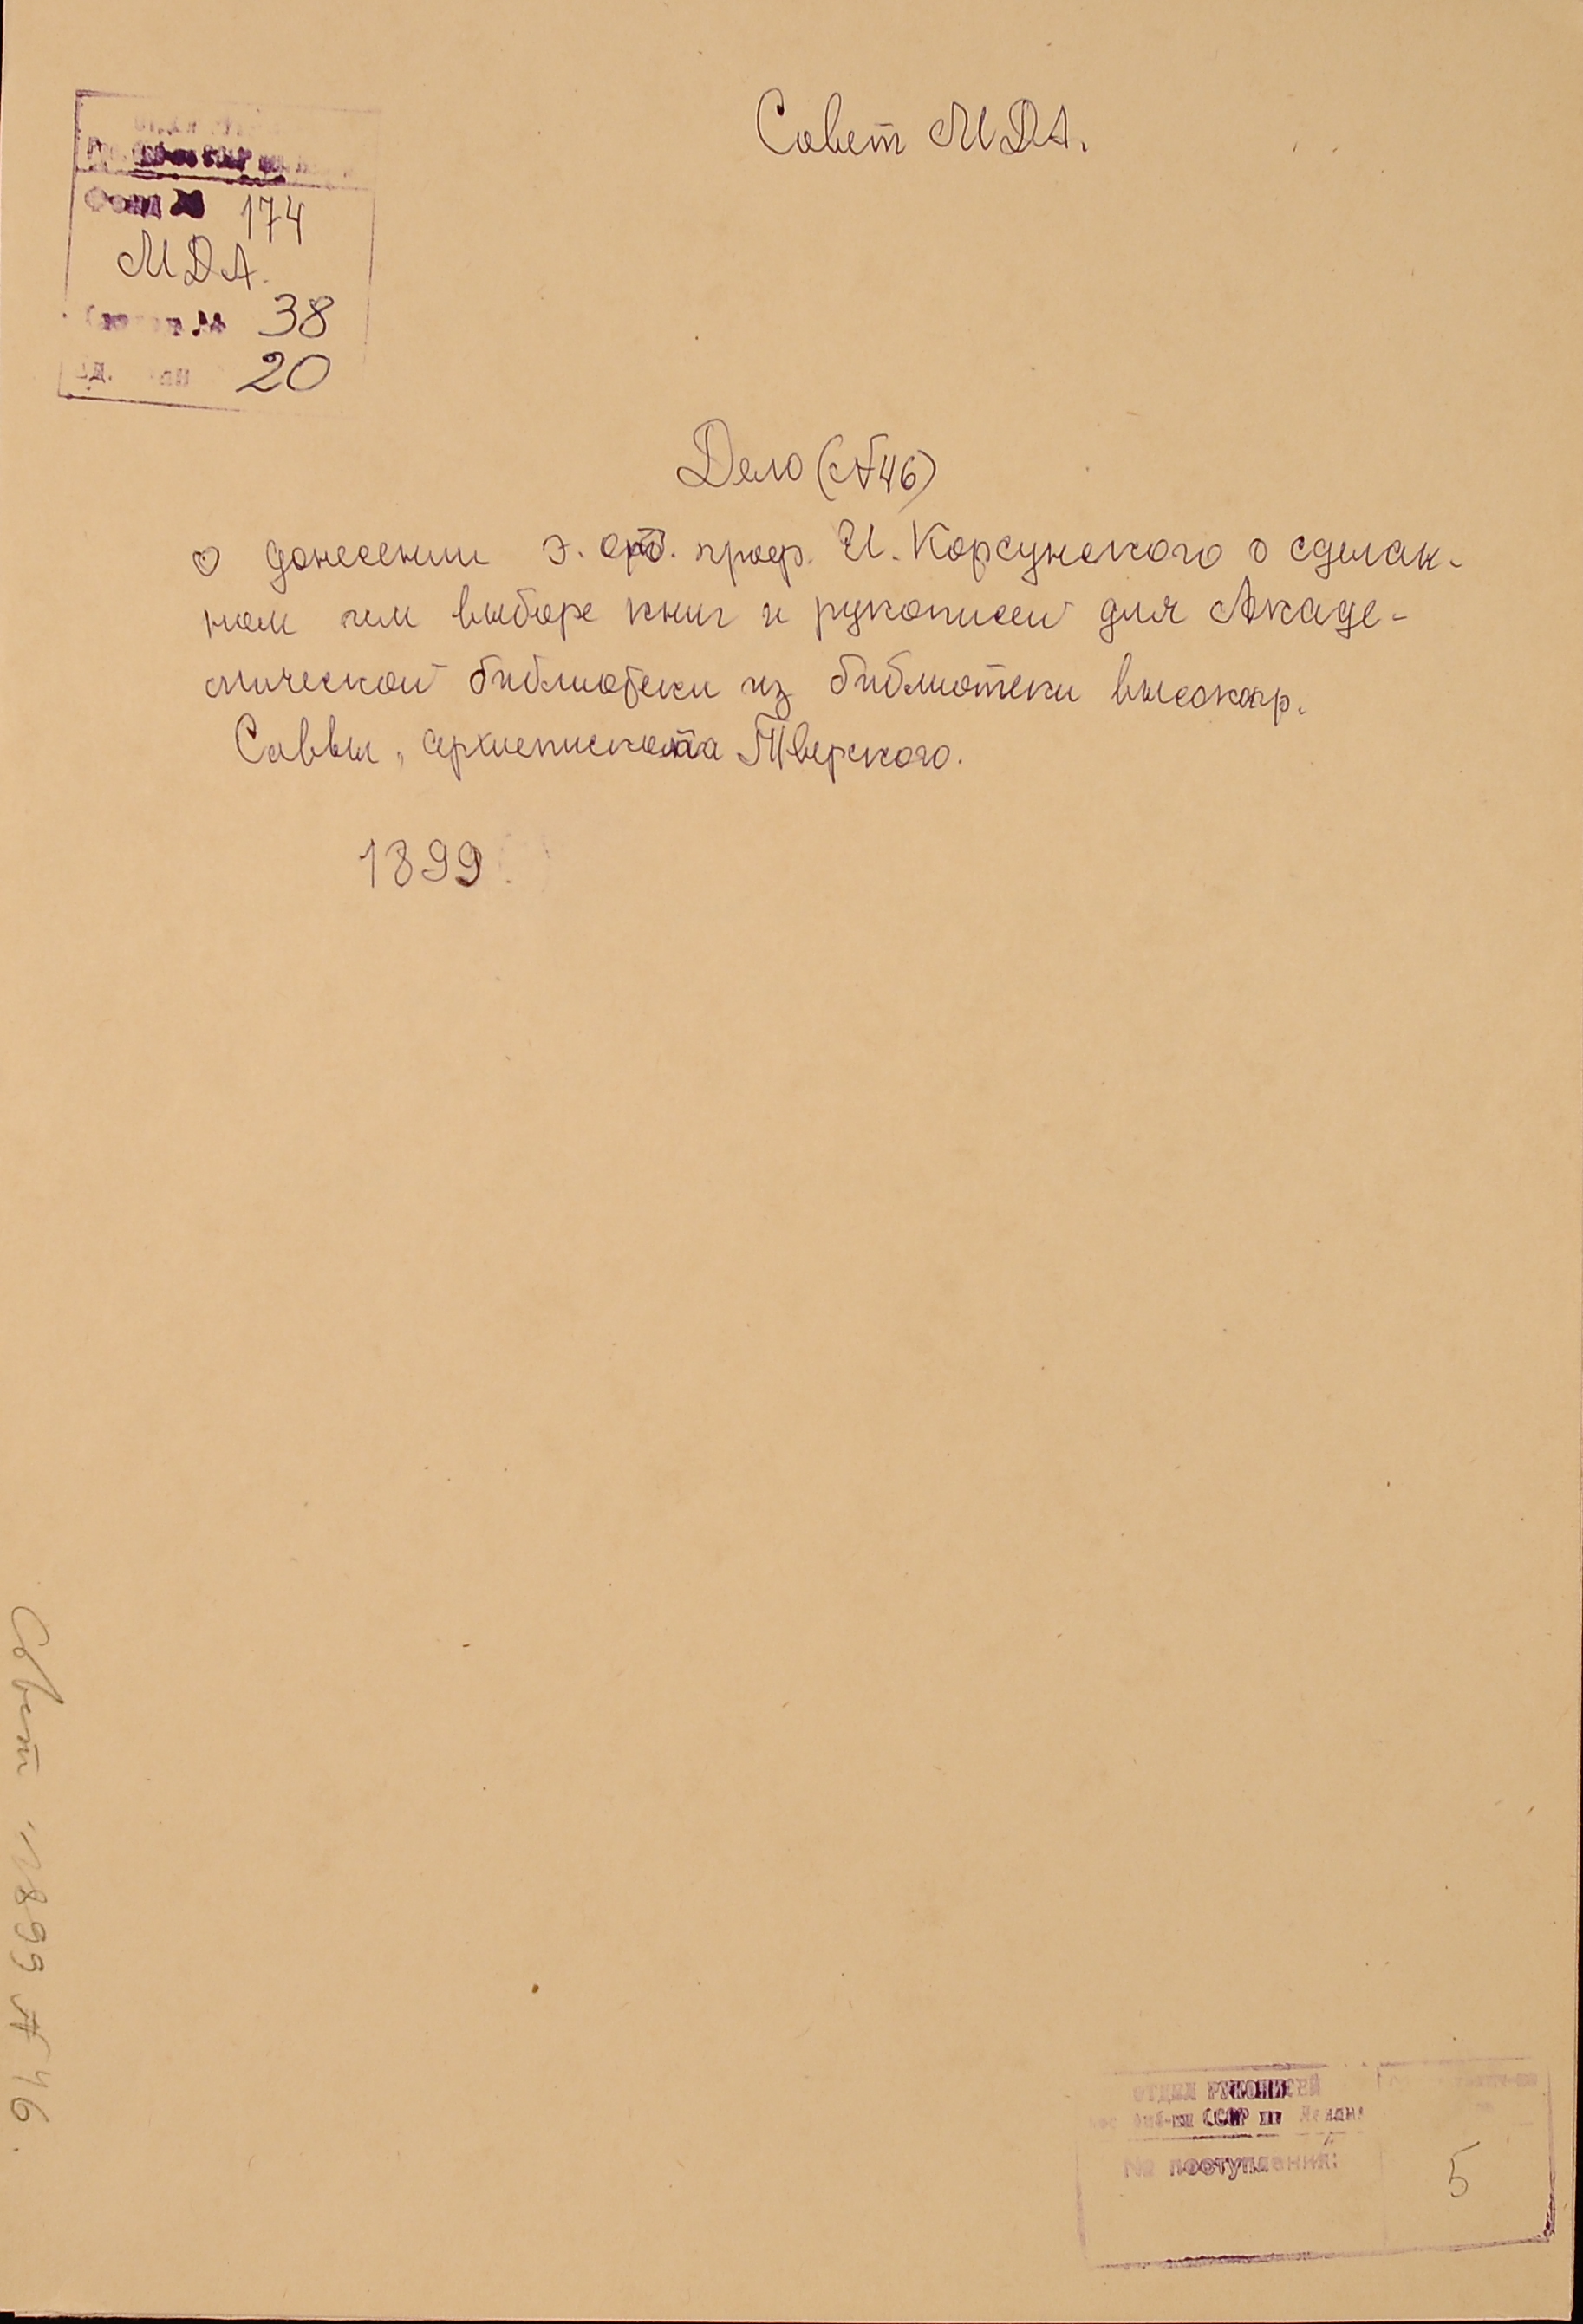 Совет МДА.
174
МДА.
38
20
Дело (№46)
о донесении э. орд. проф. И. Корсунского о сделан-
ном им выборе книг и рукописей для Акаде-
мической библиотеки из библиотеки высокопр.
Саввы, архиепископа Тверского.
1899.
Совет 1899 № 46.
ОТДЕЛ РУКОПИСЕЙ
СССР
№ поступления:
5